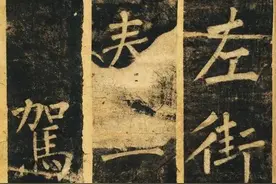 左街
夫一
駕